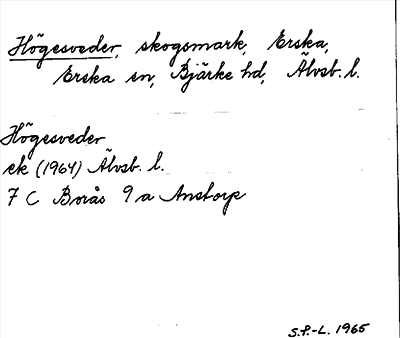 Högesveder, skogsmark, Erska,
Erska sn, Bjärke hd, Älvsb. l.
Högesveder
ek (1964) Älvsb. l.
7 C Borås 9 a Anstorp
S.P.-L. 1965